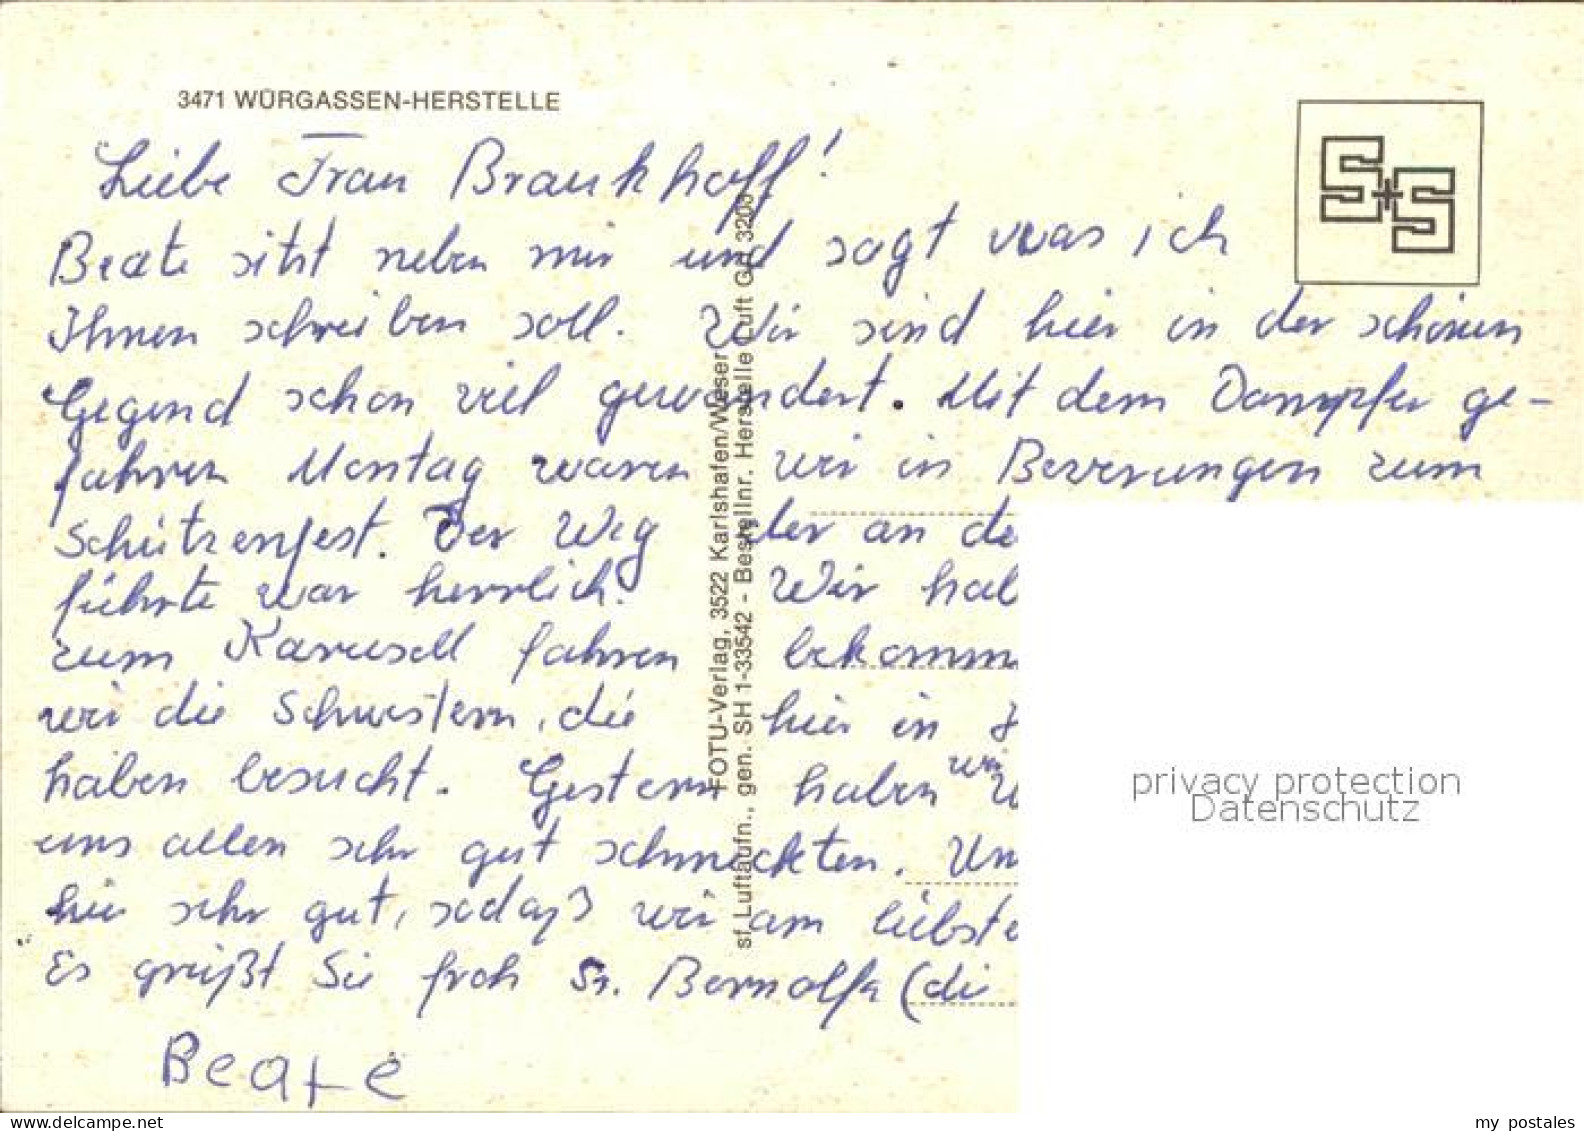 3471 WÜRGASSEN-HERSTELLE
S+S
Liebe Frau Braukhoff!
Beate sitzt neben mir und sagt was ich
Ihnen schreiben soll. Wir sind hier in der schönen
Gegend schon viel gewandert. Mit dem Dampfer ge-
fahren Montag waren wir in Beverungen zum
Schützenfest. Der Weg der an de
führte war herrlich. Wir hab
zum Karusell fahren bekomm
wir die Schwestern, die hier in
haben besucht. Gestern haben wir
uns allen sehr gut schmeckten. Un
hier sehr gut, sodaß wir am liebste
Es grüßt Sie froh Sr. Bernolfa (die
Beate
FOTU-Verlag, 3522 Karlshafen/Weser
sf. Luftaufn., gen. SH 1-33542 - Bestellnr. Herstelle Luft GR 3203
privacy protection
Datenschutz
www.delcampe.net
my postales